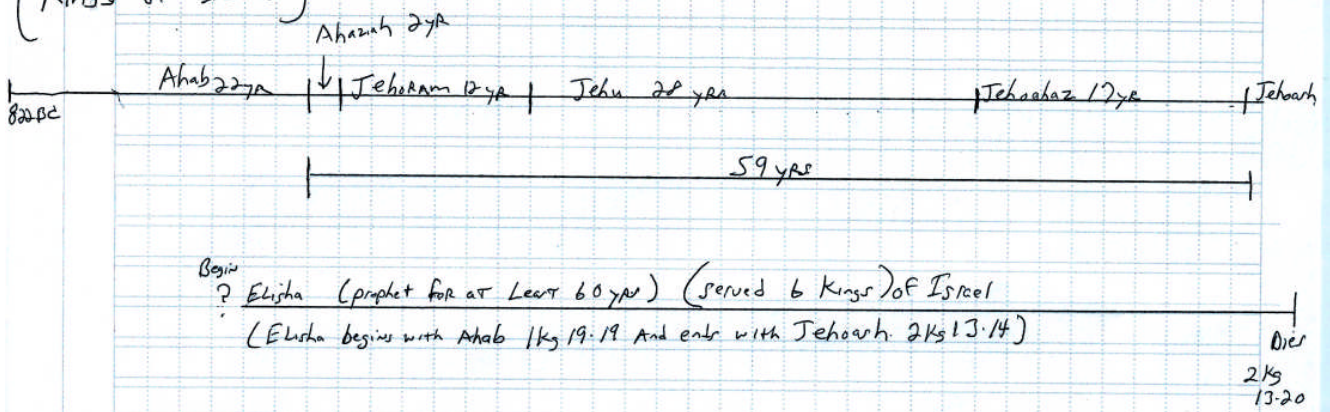 Ahaziah 2yR
Ahab 22yR
JehoRAm 12 yR
Jehu 28 yRs
Jehoahaz 17yR
Jehoash
822BC
59 yRs
Begin
? Elisha (prophet foR aT LeasT 60 yRs) (served 6 Kings) of Israel
(Elisha begins with Ahab 1kg 19:19 And ends with Jehoash. 2Kg 13:14)
Dies
2 Kg
13-20